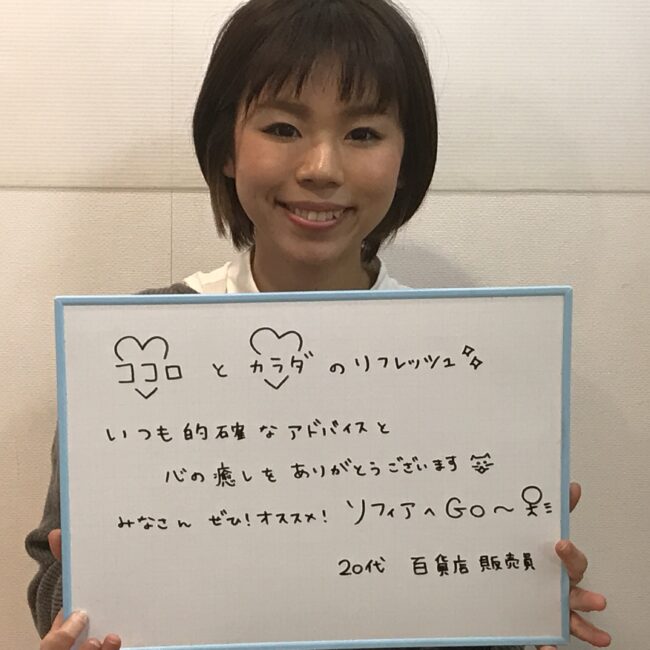 ココロ と カラダ のリフレッシュ
いつも的確なアドバイスと
心の癒しをありがとうございます
みなさん ぜひ!オススメ! ソフィアへGO〜
20代 百貨店 販売員